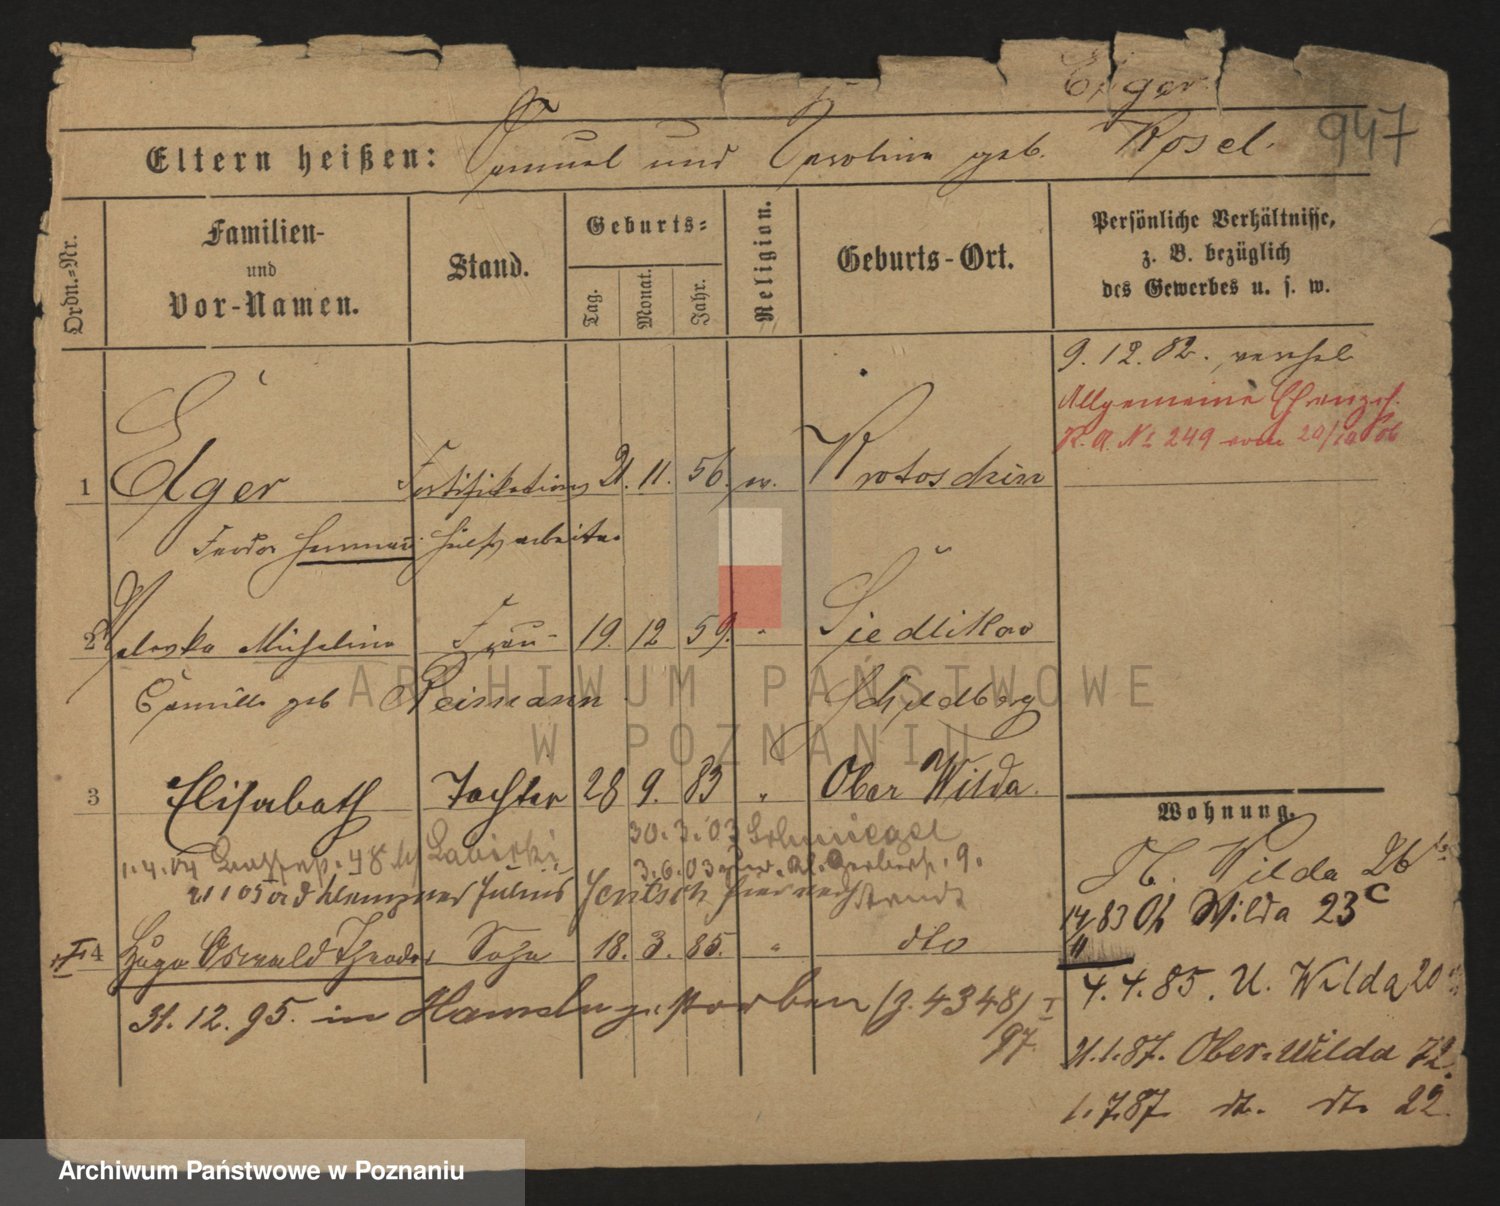 Elger
947
Eltern heißen: Samuel und Caroline geb. Rosel.
Ordn.=Nr.
Familien-
und
Vor-Namen.
Stand.
Geburts=
Tag.
Monat.
Jahr.
Religion.
Geburts-Ort.
Persönliche Verhältnisse,
z. B. bezüglich
des Gewerbes u. s. w.
9. 12. 82.
Allgemeine
R. A. No 249 vom 20/10 06
1 Elger Fortifikations 21. 11. 56. ev. Krotoschin
Feodor Hermann Hülfsarbeiter
2 Valeska Michelina Frau 19. 12 59. " Siedlikow
Camilla geb Reimann Schildberg
3 Elisabeth Tochter 28 9. 83 " Ober Wilda.
30. 3. 03 Schmiegel
1. 4. 04
3. 6. 03
21 1 05 Klempner Julius Jentsch
4 Hugo Oswald Theodor Sohn 18. 3. 85. " dto
31. 12. 95. in Hamburg verstorben (J. 4348/I
97.
Wohnung.
Ob. Wilda 26
83 Ob Wilda 23c
4. 4. 85. U. Wilda 20
21. 1. 87. Ober-Wilda 72.
1. 7. 87 dt. dt. 22
ARCHIWUM PAŃSTWOWE
W POZNANIU
Archiwum Państwowe w Poznaniu